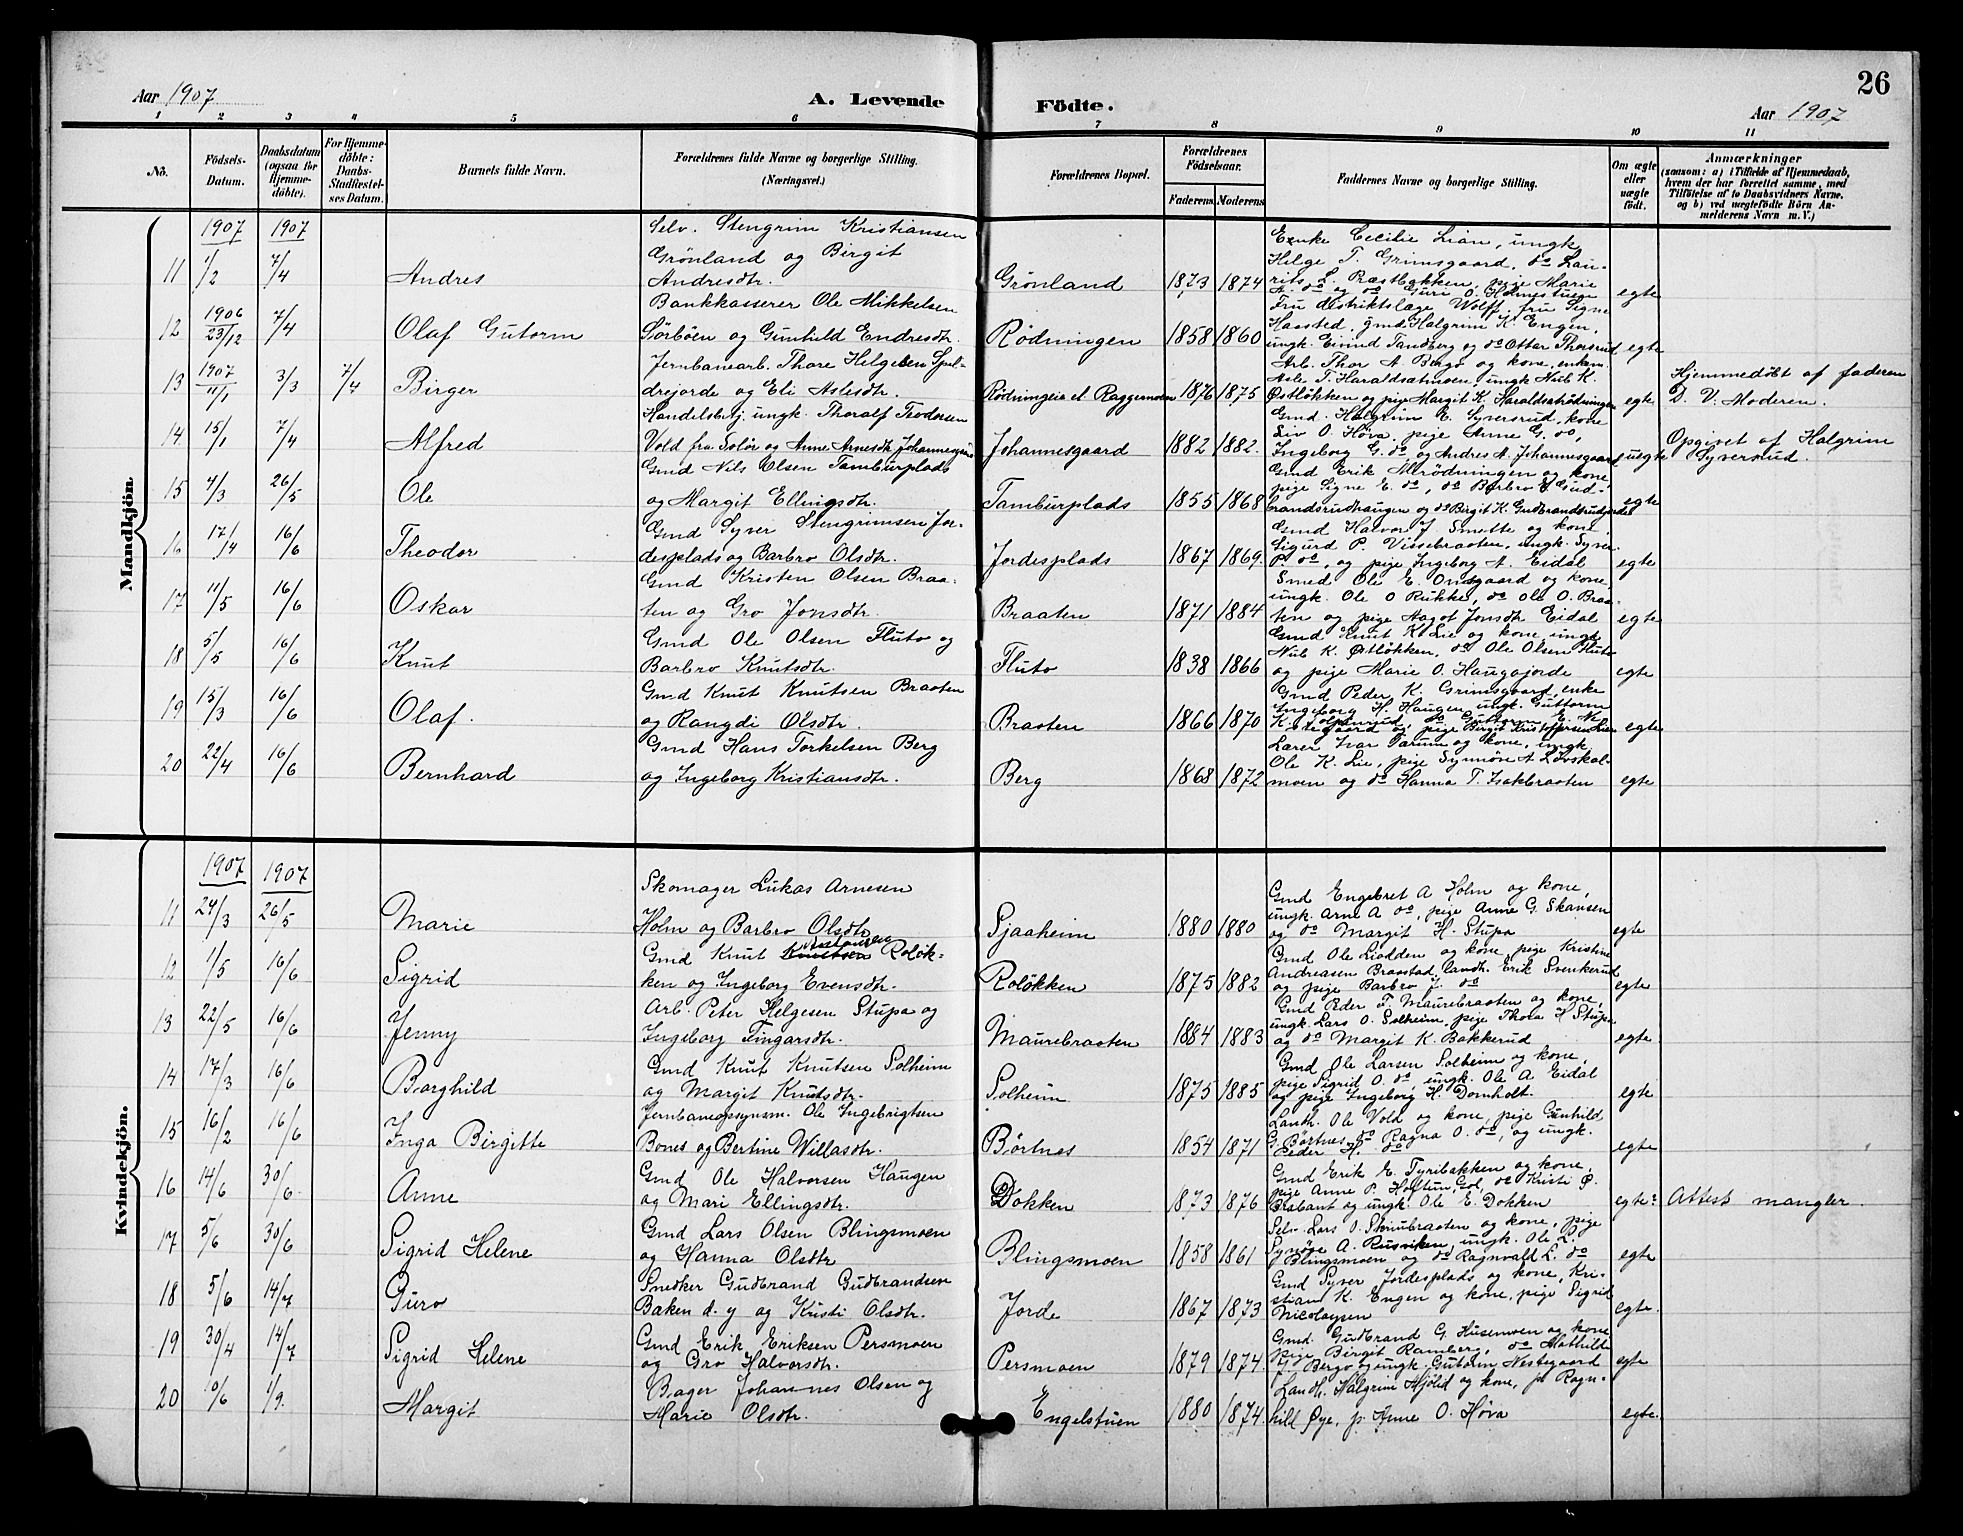 26
Aar 1907
A. Levende Födte.
Aar 1907
1 2 3 4 5 6 7 8 9 10 11
No.
Födsels-Datum.
Daabsdatum (ogsaa for Hjemme-döbte).
For Hjemme-döbte: Daabs-Stadfæstel-ses Datum.
Barnets fulde Navn.
Forældrenes fulde Navne og borgerlige Stilling. (Næringsvei.)
Forældrenes Bopæl.
Forældrenes Födselsaar.
Faderens Moderens
Faddernes Navne og borgerlige Stilling.
Om ægte eller uægte födt.
Anmærkninger
(saasom: a) i Tilfælde af Hjemmedaab,
hvem der har forrettet samme, med
Tilföielse af to Daabsvidners Navne,
og b) ved uægtefödte Börn An-
melderens Navn m. V.)
Mandkjön.
1907 1907 Selv. Stengrim Kristiansen
Grönland og Birgit
11 1/2 7/4 Andres Andresdtr. Grönland 1873 1874 egte
Enke Cecilie Lian, ungk
Helge T. Grimsgaard, do Lau-
rits L. Præstbakken, pige Marie
A. do og do Guri O. Holmestuen
Bankkasserer Ole Mikkelsen
12 1906 23/12 7/4 Olaf Gutorm Sörböen og Gunhild Endresdtr. Rødningen 1858 1860 egte
Fru distriktslæge Wolff, fru Signe
Haasted, gmd Halgrim K. Engen,
ungk. Eivind Tandberg og do Ottar Thorsrud
Jernbanearb. Thore Helgesen Spel-
13 1907 11/1 3/3 7/4 Birger drejorde og Eli Aslesdtr. Rødningen el. Raggemoen 1876 1875 egte
Arb. Thor A. Bergo og kone, enkem.
Asle T. Haraldsætmoen, ungk Nub K.
Østløkken og pige Margit K. Haraldsetrødningen
Hjemmedöbt af faderen
D. V. Moderen.
Handelsbetj. ungk. Thoralf Teodorsen
14 15/1 7/4 Alfred Vold fra Solör og Anne Arnesdtr. Johannesgaard Johannesgaard 1882 1882. uegte
Gmd. Halgrim E. Syversrud, kone
Liv O. Høva, pige Anne G. do,
Ingeborg G. do, og Andres A. Johannesgaard
Opgivet af Halgrim
Syversrud.
Gmd Nils Olsen Tamburplads
15 4/3 26/5 Ole og Margit Ellingsdtr. Tamburplads 1855 1868 egte
Gmd Erik Mrødningen og kone,
pige Signe E. do, do Barbro E. Gud-
brandsrudhaugen og do Birgit K. Gudbrandsrudjordet
Gmd Syver Stengrimsen Jor-
16 17/4 16/6 Theodor desplads og Barbro Olsdtr. Jordesplads 1867 1869. egte
Gmd Halvor J. Smette og kone,
Sigurd P. Vissebraaten, ungk. Syver
P. do, og pige Ingeborg A. Eidal
Gmd Kristen Olsen Braa-
17 11/5 16/6 Oskar ten og Gro Jonsdtr. Braaten 1871 1884 egte
Smed Ole E. Onsgaard og kone
ungk. Ole O Rukke, do Ole O. Braa-
ten og pige Aagot Jonsdtr Eidal
Gmd Ole Olsen Fluto og
18 5/5 16/6 Knut Barbro Knutsdtr. Fluto 1838 1866 egte
Gmd Knut K. Lie og kone, ungk
Nub K. Østløkken, do Ole Olsen Fluto
og pige Marie O. Haugajorde
Gmd Knut Knutsen Braaten
19 15/3 16/6 Olaf. og Rangdi Olsdtr. Braaten 1866 1870 egte
Gmd Peder K. Grimsgaard, enke
Ingeborg H. Haugen, ungk. Guttorm
Gmd Hans Torkelsen Berg
20 22/4 16/6 Bernhard og Ingeborg Kristiansdtr. Berg 1868 1872 egte
Lærer Ivar Tarum og kone, ungk
Ole K. Lie, pige Synnöve A Løvskal-
moen og do Hanna T. Isakbraaten
Kvindekjön.
1907 1907 Skomager Lukas Arnesen
11 24/3 26/5 Marie Holm og Barbro Olsdtr Sjaaheim 1880 1880 egte
Gmd Engebret A Holm og kone,
ungk. Arne A do, pige Anne G. Skansen
og do Margit H. Stupa
Gmd Knut Knutsen Roløk-
12 1/5 16/6 Sigrid ken og Ingeborg Evensdtr. Roløkken 1875 1882 egte
Gmd Ole Liodden og kone, pige Kristine
Andreasen Braastad, landh. Erik Svenkerud
og pige Barbro J. do
Arb. Peter Helgesen Stupa og
13 22/5 16/6 Jenny Ingeborg Fingarsdtr. Maurebraaten 1884 1883 egte
Gmd Peder F. Maurebraaten og kone,
ungk. Lars O. Solheim, pige Thora H Stupa
og do Margit K. Bakkerud
Gmd Knut Knutsen Solheim
14 17/3 16/6 Borghild og Margit Knutsdtr. Solheim 1875 1885 egte
Gmd Ole Larsen Solheim og kone,
pige Sigrid O. do, ungk. Ole A. Eidal
og pige Ingeborg H. Domholt.
Jernbaneopsynsm. Ole Ingebrigtsen
15 16/2 16/6 Inga Birgitte Bones og Bertine Willasdtr. Börtnes 1854 1871 egte
Landh. Ole Vold og kone, pige Gunhild
G. Börtnes, do Ragna O. do, og ungk.
Peder H. do
Gmd Ole Halvorsen Haugen
16 14/6 30/6 Anne og Mari Ellingsdtr. Dokken 1873 1876 egte? Attest mangler.
Gmd Erik E. Tyribakken og kone,
pige Anne P. Hoftun, Gol, do Kristi O.
Brabant og ungk. Ole E. Dokken
Gmd Lars Olsen Blingsmoen
17 5/6 30/6 Sigrid Helene og Hanna Olsdtr Blingsmoen 1858 1861 egte
Selv. Lars O. Skrubraaten og kone, pige
Synöve A. Rusviken, ungk. Ole L.
Blingsmoen og do Ragnvald L. do
Snedker Gudbrand Gudbrandsen
18 5/6 14/7 Guro Baken d. y og Kristi Olsdtr. Jorde 1867 1873 egte.
Gmd Syver Jordesplads og kone, Kri-
stian K. Engen og kone, pige Sigrid
Nicolaysen
Gmd Erik Eriksen Persmoen
19 30/4 14/7 Sigrid Helene og Gro Halvorsdtr. Persmoen 1879 1874 egte
Gmd. Gudbrand G. Husemoen og kone
pige Birgit Ramberg, do Mathilde
J. Bergo og ungk. Gutorm Nestegaard
Bager Johannes Olsen og
20 10/6 1/9. Margit Marie Olsdtr. Engelstuen 1880 1874. egte.
Landh. Halgrim Mjölid og kone, p. Ragn-
hild Øye, p. Anne O. Høva